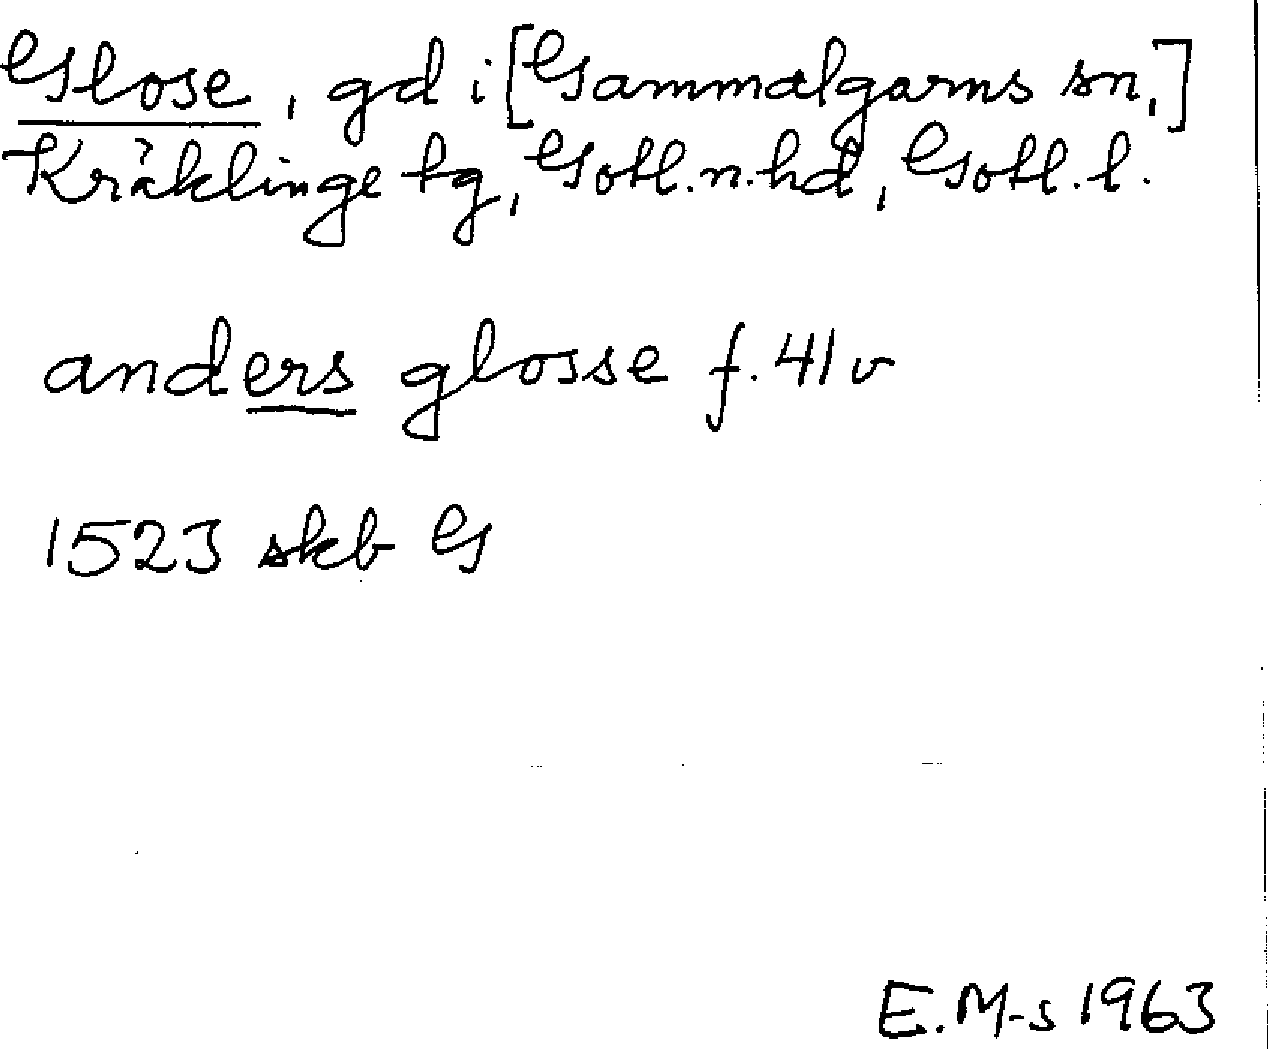 Glose, gd i [Gammalgarns sn,]
Kräklinge tg, Gotl. n. hd, Gotl. l.
anders glosse f. 41 v
1523 skb G
E. M-s 1963